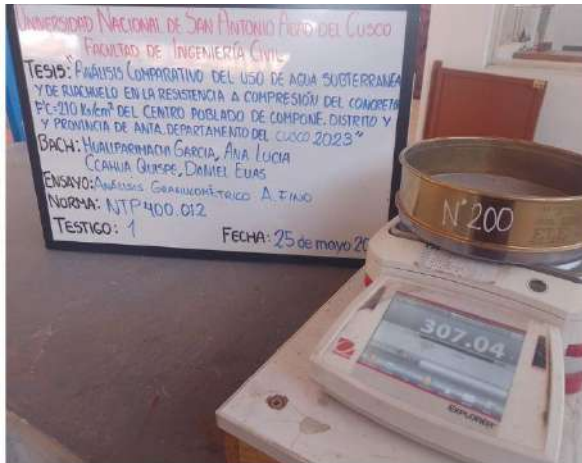 UNIVERSIDAD NACIONAL DE SAN ANTONIO ABAD DEL CUSCO
FACULTAD DE INGENIERÍA CIVIL
TESIS: "ANÁLISIS COMPARATIVO DEL USO DE AGUA SUBTERRANEA
Y DE RIACHUELO EN LA RESISTENCIA A COMPRESIÓN DEL CONCRETO
F'C=210 Kg/cm² DEL CENTRO POBLADO DE COMPONE, DISTRITO Y
Y PROVINCIA DE ANTA, DEPARTAMENTO DEL CUSCO 2023"
BACH: HUALLPARIMACHI GARCIA, ANA LUCIA
CCAHUA QUISPE, DANIEL ELIAS
ENSAYO: ANÁLISIS GRANULOMÉTRICO A. FINO
NORMA: NTP 400.012
TESTIGO: 1
FECHA: 25 de mayo 20
N°200
307.04
EXPLORER